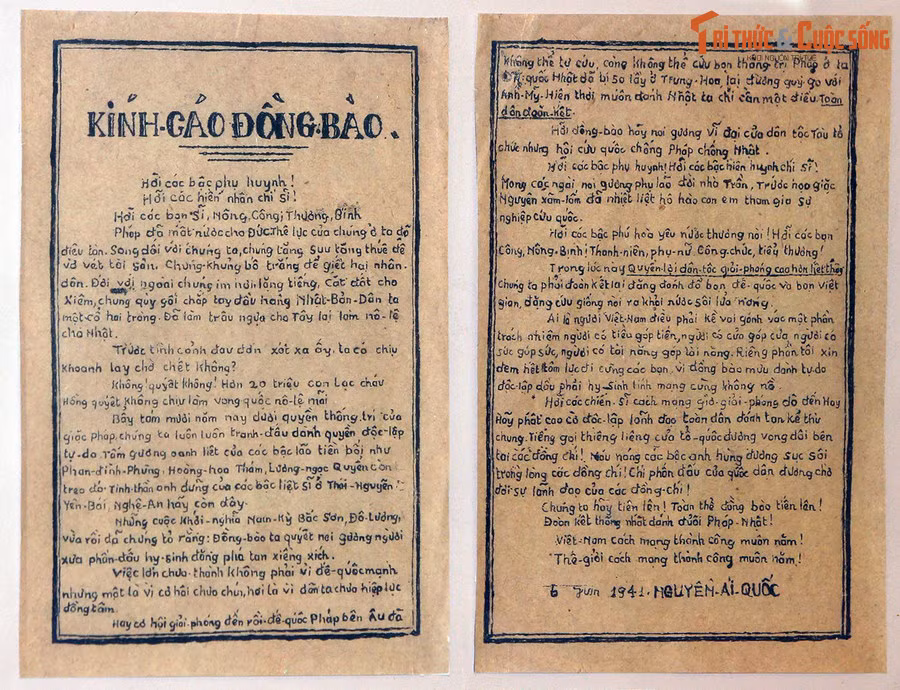 KÍNH-CÁO ĐỒNG-BÀO.
Hỡi các bậc phụ huynh!
Hỡi các hiền nhân chí sĩ!
Hỡi các bạn Sĩ, Nông, Công, Thương, Binh
Pháp đã mất nước cho ĐỨC Thế lực của chúng ở ta đã
điêu tàn. Song đối với chúng ta, chúng tăng sưu tăng thuế để
vơ vét tài sản. Chúng khủng bố trắng để giết hại nhân-
dân. Đối với ngoài chúng im hơi lặng tiếng, cắt đất cho
Xiêm, chúng quỳ gối chắp tay đầu hàng Nhật-Bản-Dân ta
một cổ hai tròng. Đã làm trâu ngựa cho Tây lại làm nô-lệ
cho Nhật.
Trước tình cảnh đau đớn xót xa ấy, ta có chịu
khoanh tay chờ chết không?
Không quyết không! Hơn 20 triệu con Lạc cháu
Hồng quyết không chịu làm vong quốc nô-lệ mãi
Bảy tám mươi năm nay dưới quyền thống-trị của
giặc Pháp, chúng ta luôn luôn tranh-đấu dành quyền độc-lập
tự-do. Tấm gương oanh liệt của các bậc lão tiền bối như
Phan-đình-Phùng, Hoàng-hoa Thám, Lương-ngọc Quyến còn
treo đó. Tinh-thần anh dũng của các bậc liệt sĩ ở Thái-Nguyên
Yên-Bái, Nghệ-An hãy còn đây.
Những cuộc Khởi-nghĩa Nam-Kỳ Bắc Sơn, Đô-Lương,
vừa rồi đã chứng tỏ rằng: Đồng-bào ta quyết nơi gương người
xưa phấn-đấu hy-sinh đặng phá tan xiềng xích.
Việc lớn chưa thành không phải vì đế-quốc mạnh
nhưng một là vì cơ hội chưa chín, hai là vì dân ta chưa hiệp lực
đồng tâm.
Nay cơ hội giải phóng đến rồi-đế-quốc Pháp bên Âu đã
không thể tự cứu, càng không thể cứu bọn thống trị Pháp ở ta
Đế-quốc Nhật đã bị sa lầy ở Trung-Hoa, lại đương quỵ gọ với
Anh-Mỹ-Hiện thời muốn đánh Nhật ta chỉ cần một điều Toàn
dân đoàn-kết.
Hỡi đồng-bào hãy noi gương vĩ đại của dân tộc Tàu tổ
chức những hội cứu quốc chống Pháp chống Nhật.
Hỡi các bậc phụ huynh! Hỡi các bậc hiền huynh chí sĩ!
Mong các ngài noi gương phụ lão đời nhà Trần, Trước họa giặc
Nguyên xâm-lấn đã nhiệt liệt hô hào con em tham gia sự
nghiệp cứu quốc.
Hỡi các bậc phú hòa yêu nước thương nòi! Hỡi các bạn
Công, Nông, Binh! Thanh-niên, phụ-nữ Công-chức, tiểu thương!
Trong lúc này Quyền-lợi dân-tộc giải-phóng cao hơn hết thảy
Chúng ta phải đoàn kết lại đặng đánh đổ bọn đế-quốc và bọn Việt
gian, đặng cứu giống nòi ra khỏi nước sôi lửa nóng.
Ai là người Việt-Nam điều phải kề vai gánh vác một phần
trách nhiệm người có tiền góp tiền, người có của góp của người có
sức góp sức, người có tài năng góp tài năng. Riêng phần tôi xin
đem hết tâm lực đi cùng các bạn, vì đồng bào mưu dành tự do
độc-lập dầu phải hy-sinh tính mạng cũng không nề.
Hỡi các chiến-sĩ cách mạng giờ-giải-phóng đã đến Hãy
Hãy phất cao cờ độc-lập lãnh đạo toàn dân đánh tan kẻ thù
chung. Tiếng gọi thiêng liêng của tổ-quốc đương vang dội bên
tai các đồng chí! Máu nóng các bậc anh hùng đương sục sôi
trong lòng các đồng chí! Chí phấn đấu của quốc dân đương chờ
đợi sự lãnh đạo của các đồng-chí!
Chúng ta hãy tiến lên! Toàn thể đồng bào tiến lên!
Đoàn kết thống nhất đánh đuổi Pháp-Nhật!
Việt-Nam cách mạng thành công muôn năm!
Thế-giới cách mạng thành công muôn năm!
6 Juin 1941. NGUYỄN-ÁI-QUỐC
TRI THỨC & CUỘC SỐNG